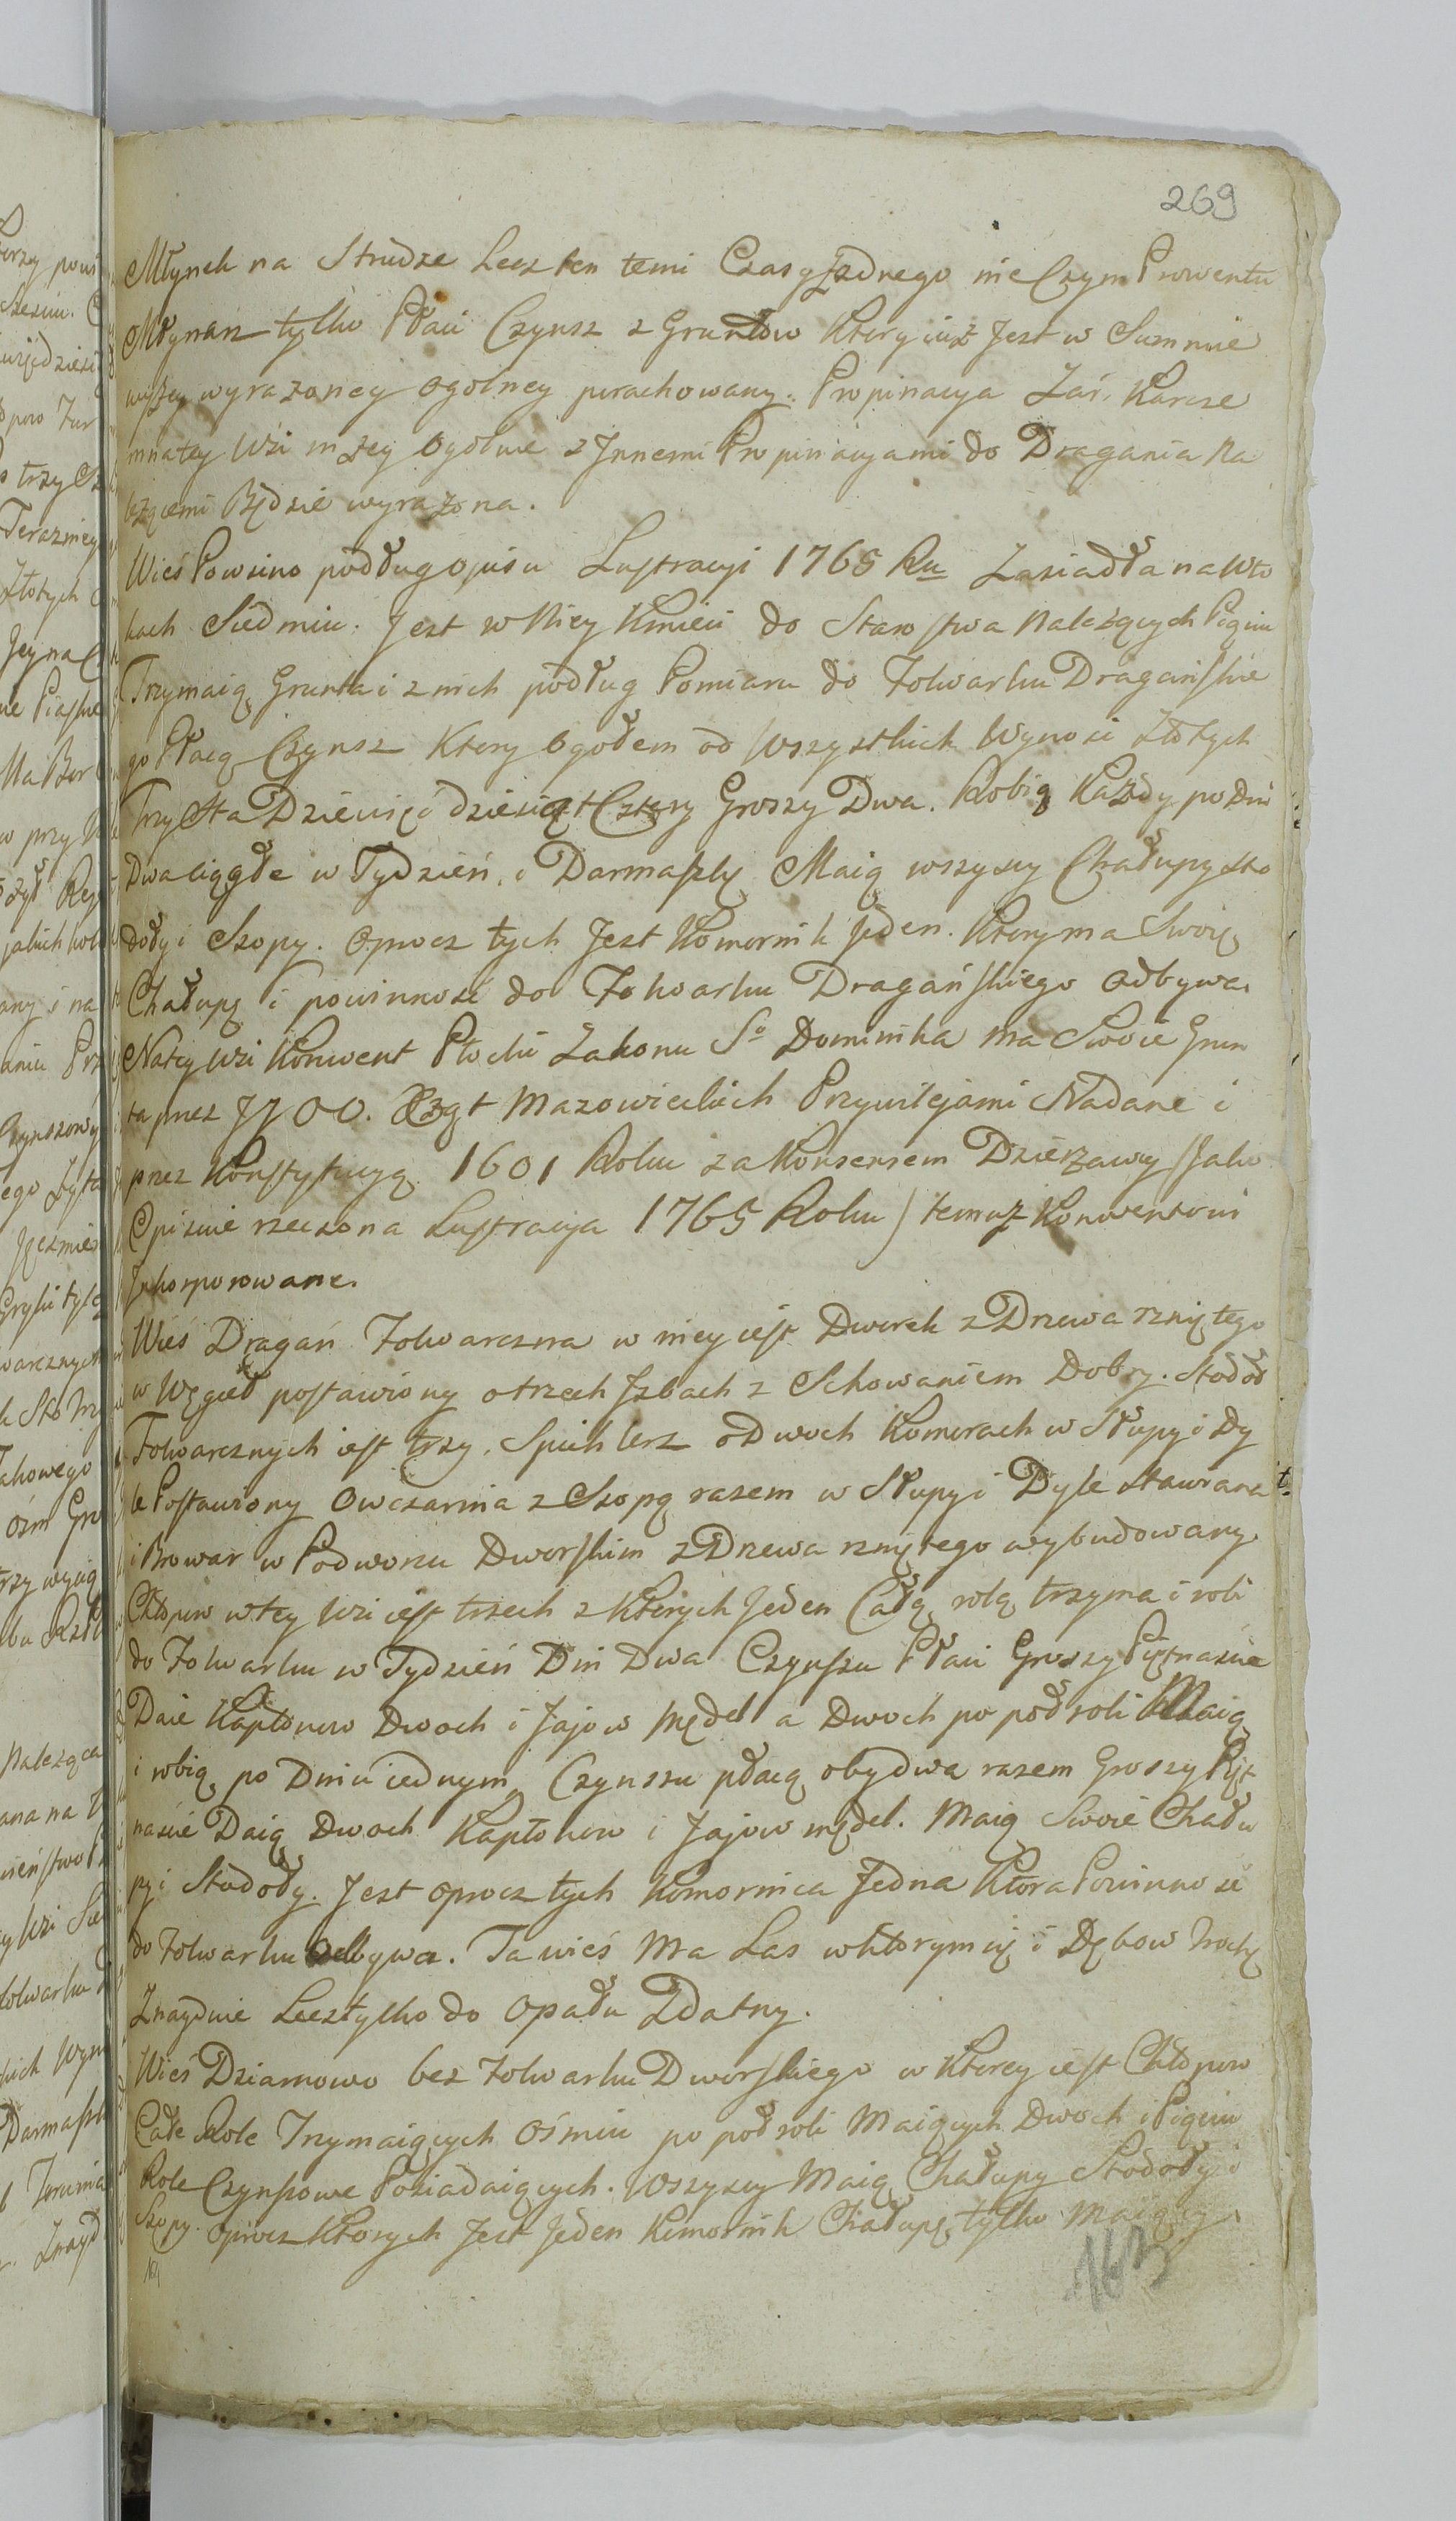 269
Młynek na Strudze Lecz ten temi Czasy żadnego nie Czyni Prowentu
Młynarz tylko Płaci Czynsz z Gruntow Ktery iuż Jest w Summie
wyżey wyrażoney ogolney porachowany. Propinacya Zaś Karcze
mna tey Wsi niżey ogolnie z Jnnemi Propinacyami do Dragania Na
leżącemi Będzie wyrażona.
Wieś Powsino podług opisu Lustracyi 1765 Ru Zasiadła na Wło
kach Siedmiu. Jest w Niey Kmieci do Starostwa Należących Pięciu
Trzymaią Grunta i z nich podług Pomiaru do Folwarku Dragańskie
go Płacą Czynsz Ktery ogołem od Wszystkich Wynosi Złotych
Trzysta Dziewięćdziesiąt Cztery Groszy Dwa. Robią Każdy po Dni
Dwa ciągłe w Tydzień, i Darmaszlę Maią wszyscy Chałupy Sto
doły i Szopy. oprocz tych Jest Komornik Jeden. Ktery ma Swoię
Chałupę i powinność do Folwarku Dragańskiego odbywa.
Na tey Wsi Konwent Płocki Zakonu So Dominika ma Swoie Grun
ta przez JJ OO. Xżąt Mazowieckich Przywilejami Nadane i
przez Konstytucyą 1601 Roku za Konsensem Dzierżawcy /Jako
Opisuie rzeczona Lustracya 1765 Roku/ temuż Konwentowi
Jnkorporowane.
Wieś Dragań Folwarczna w niey iest Dworek z Drzewa rzniętego
w Węgieł postawiony o trzech Jzbach z Schowaniem Dobry. Stodoł
Folwarcznych iest trzy. Spichlerz o Dwoch Komorach w Słupy i Dy
le Postawiony Owczarnia z Szopą razem w Słupy i Dyle stawiana
i Browar w Podworzu Dworskim z Drzewa rzniętego wybudowany
Chłopow w tey Wsi iest trzech z Kterych Jeden Całą rolą trzyma i robi
do Folwarku w Tydzień Dni Dwa Czynszu Płaci Groszy Piętnaście
Daie Kapłonow Dwoch i Jajow Mędel a Dwoch po poł roli Maią
i robią po Dniu iednym, Czynszu płacą obydwa razem Groszy Pięt
naście Daią Dwoch Kapłonow i Jajow mędel. Maią Swoie Chału
py i Stodoły. Jest oprocz tych Komornica Jedna Ktora Powinność
do Folwarku odbywa. Ta wieś Ma Las w ktorym się i Dębow trochę
Znayduie Lecz tylko do Opału Zdatny.
Wieś Dziarnowo bez Folwarku Dworskiego w Kterey iest Chłopow
Całe Role Trzymaiących ośmiu po poł roli Maiących Dwoch i Pięciu
Role Czynszowe Posiadaiących. Wszyscy Maią Chałupy Stodoły i
Szopy. oprocz Ktorych Jest Jeden Komornik Chałupę tylko Maiący.
163